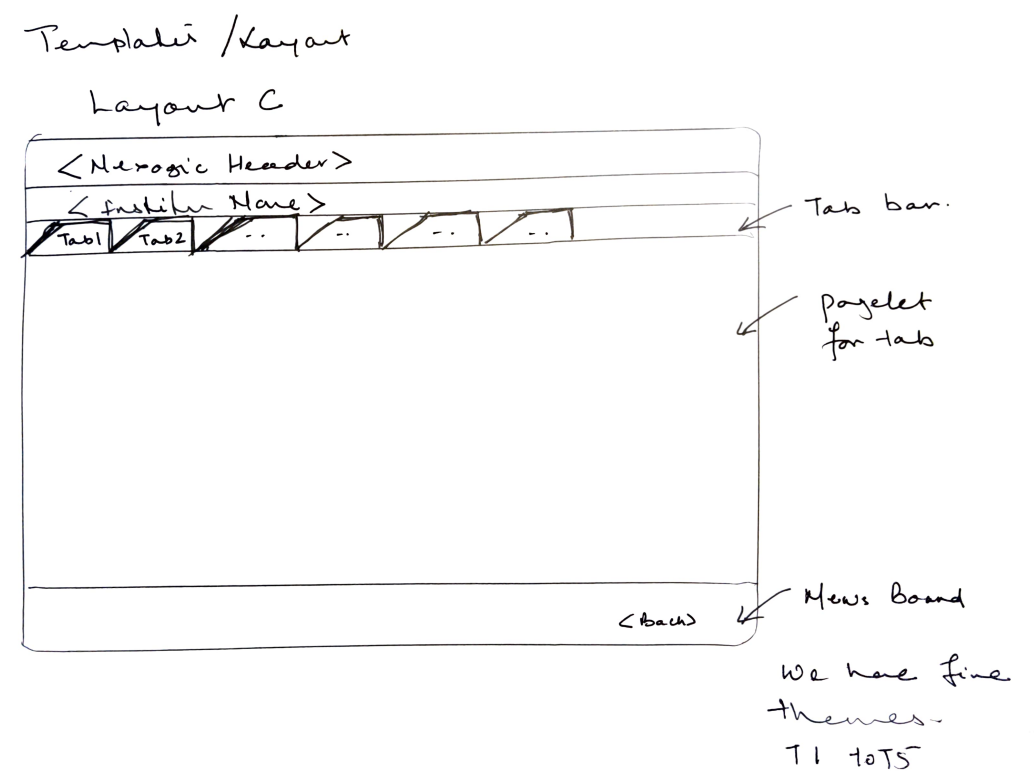 Templates / Layout
Layout C
<Nexogic Header>
<Institu Name>
Tab1 Tab2 -. -. -. -.
Tab bar.
Pagelet
for tab
News Board
<Back>
We have five
themes.
T1 to T5